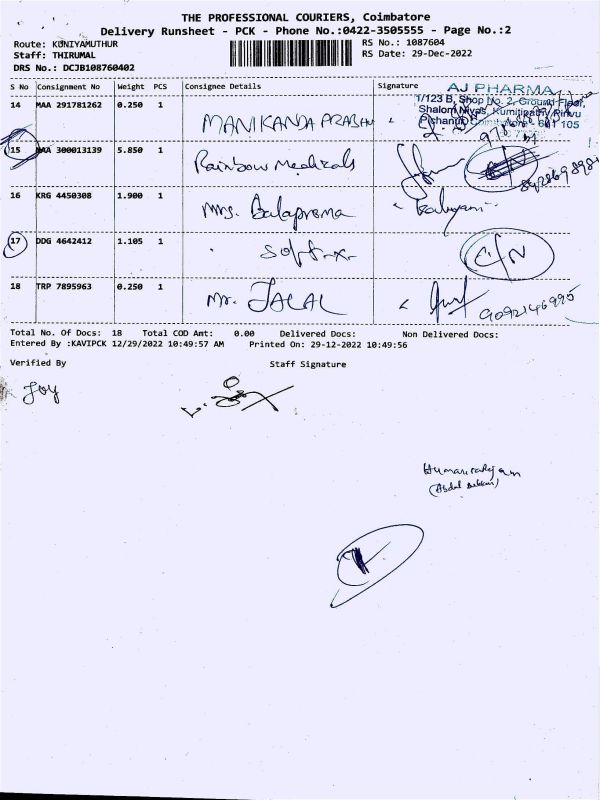 THE PROFESSIONAL COURIERS, Coimbatore
Delivery Runsheet - PCK - Phone No.:0422-3505555 - Page No.:2
Route: KUNIYAMUTHUR
Staff: THIRUMAL
DRS No.: DCJB108760402
RS No.: 1087604
RS Date: 29-Dec-2022
S No Consignment No Weight PCS Consignee Details Signature
AJ PHARMA
1/123 B, Shop No. 2, Ground Floor,
Shalom Nivas, Kumittipathy Pirivu
Pichanur, Coimbatore - 641 105
14 MAA 291781262 0.250 1 MANIKANDA PRABHU
15 MAA 300013139 5.850 1 Rainbow Medicals
16 KRG 4450308 1.900 1 Mrs. Balaprema
17 DDG 4642412 1.105 1
18 TRP 7895963 0.250 1 Mr. JALAL 9092146995
Total No. Of Docs: 18 Total COD Amt: 0.00 Delivered Docs: Non Delivered Docs:
Entered By :KAVIPCK 12/29/2022 10:49:57 AM Printed On: 29-12-2022 10:49:56
Verified By Staff Signature
Joy